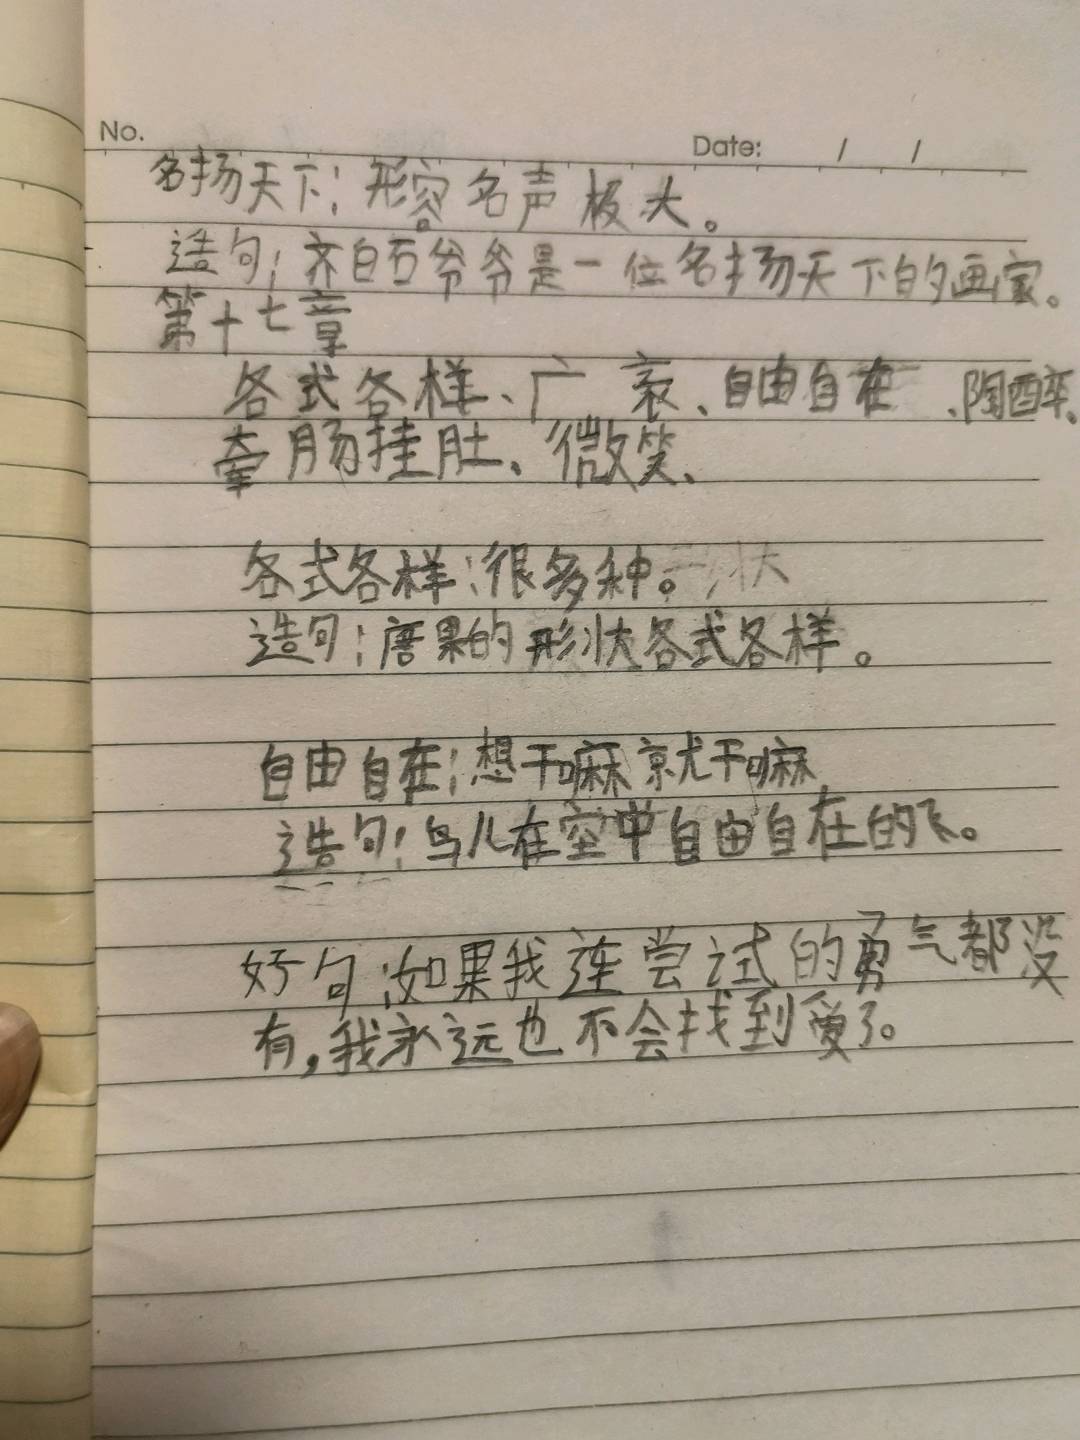 No.
Date: / /
名扬天下：形容名声极大。
造句：齐白石爷爷是一位名扬天下的画家。
第十七章
各式各样、广袤、自由自在、陶醉、
牵肠挂肚、微笑、
各式各样：很多种。形状
造句：唐果的形状各式各样。
自由自在：想干嘛就干嘛
造句：鸟儿在空中自由自在的飞。
好句：如果我连尝试的勇气都没
有，我永远也不会找到爱了。